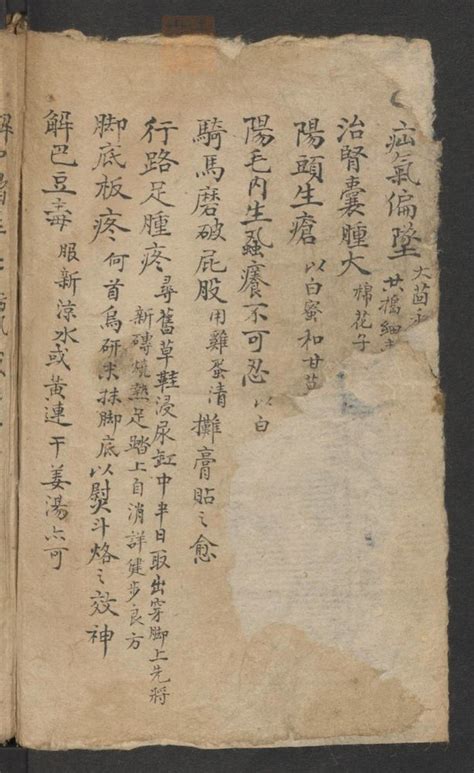 疝氣偏墜 大茴
共搗細
治腎囊腫大 棉花子
陽頭生瘡 以白蜜和甘
陽毛內生虱癢不可忍 以白
騎馬磨破屁股 用雞蛋清攤膏貼之愈
行路足腫疼 尋舊草鞋浸尿缸中半日取出穿脚上先將
新磚燒熱足踏上自消詳健步良方
脚底板疼 何首烏研末抹脚底以熨斗烙之效神
解巴豆毒 服新涼水或黃連干姜湯六可